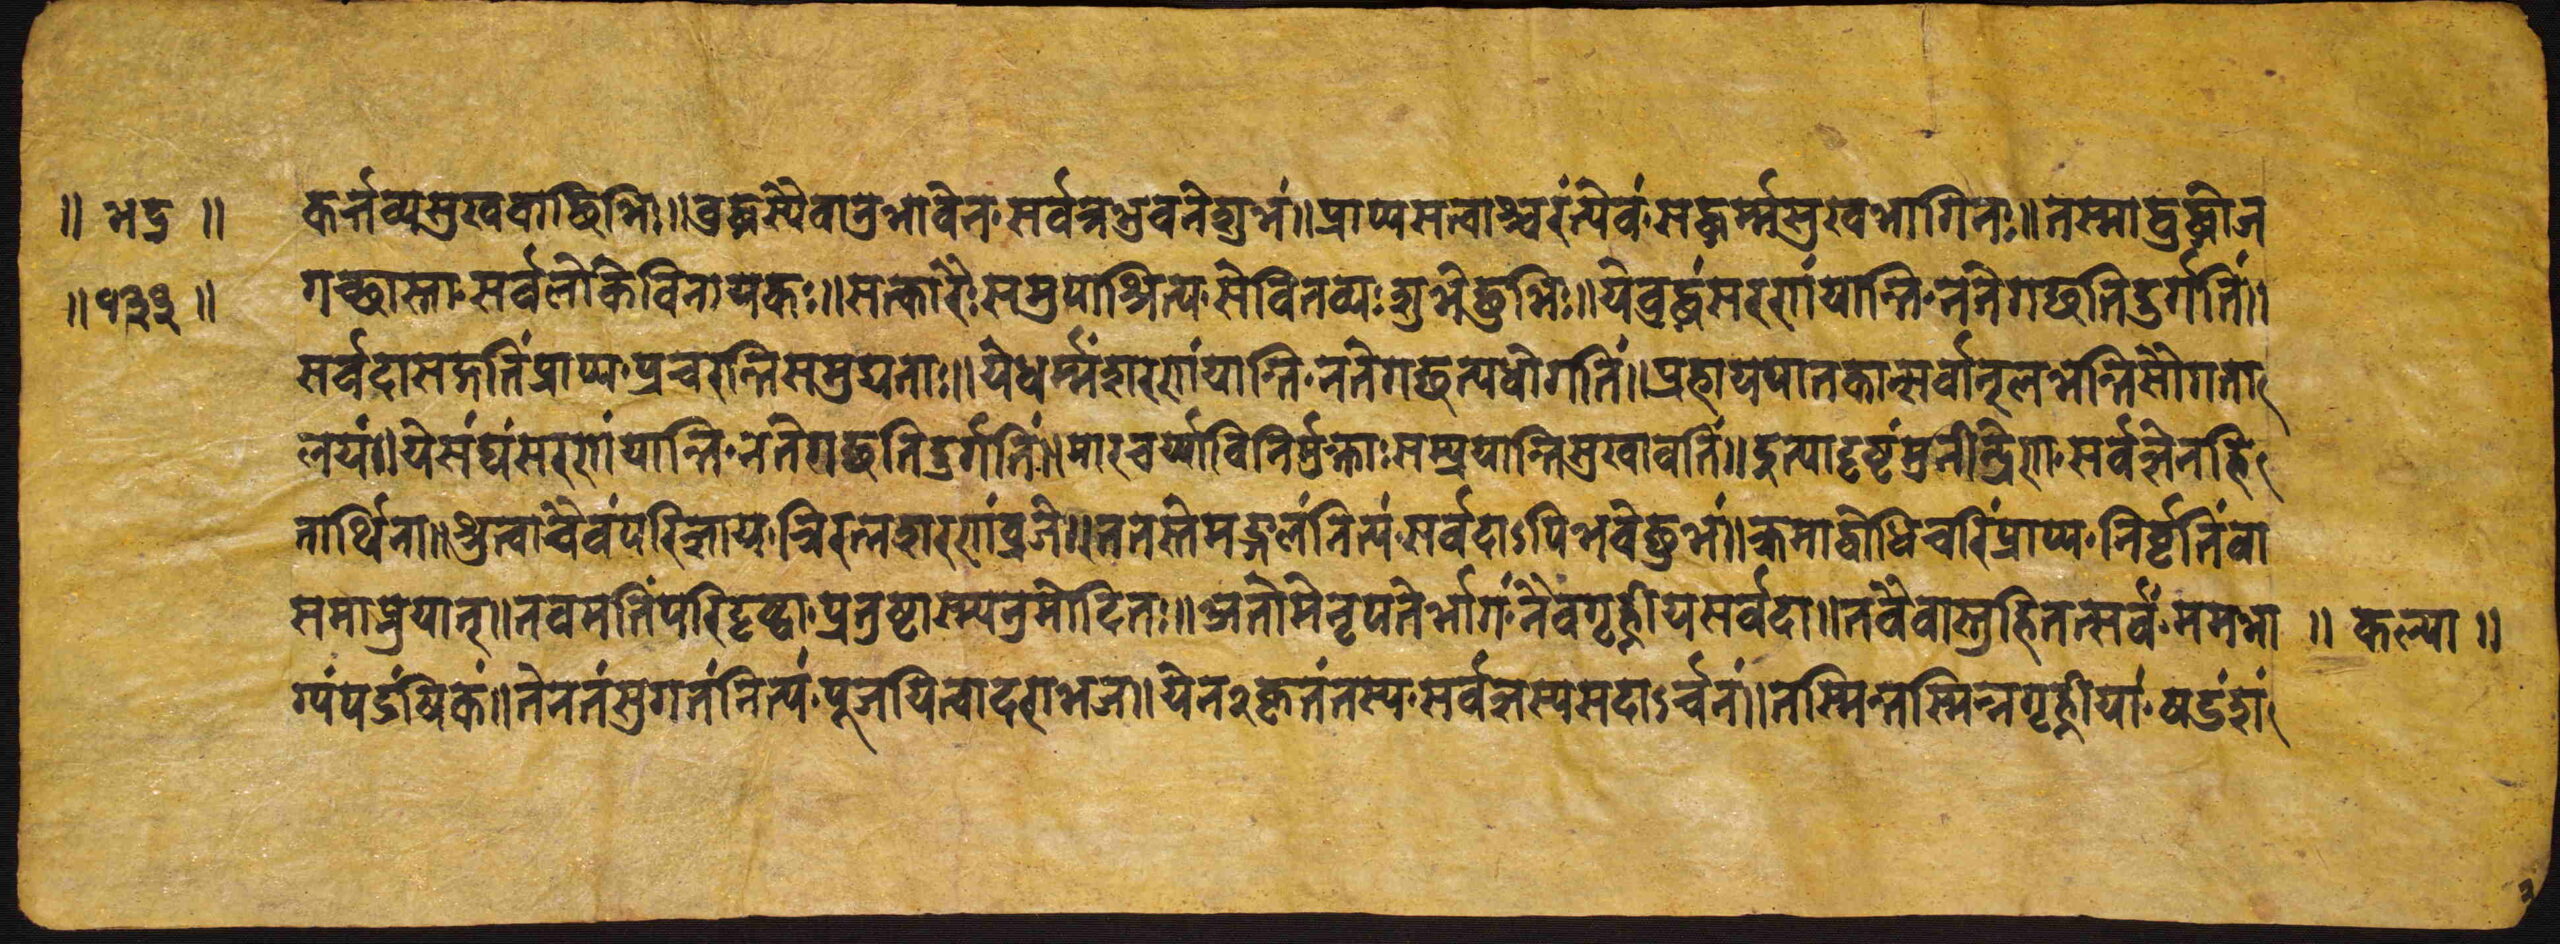 ॥ भद्र ॥
॥ १३३ ॥
कर्त्तव्यसुखवाञ्छिभिः॥ बुद्धस्यैवानुभावेन, सर्वत्रभुवनेशुभं॥ प्राप्यसत्त्वाश्चरंत्येवं, सद्धर्म्मसुखभागिनः॥ तस्माद्बुद्धोज
गच्छास्ता, सर्वलोकेविनायकः॥ सत्कारैः समुपाश्रित्य, सेवितव्यः शुभेछुभिः॥ येबुद्धंसरणंयान्ति, नतेगछंतिदुर्गतिं॥
सर्वदासद्गतिंप्राप्य, प्रचरन्तिसमुद्यताः॥ येधर्म्मंशरणंयान्ति, नतेगछंत्यधोगतिं॥ प्रहायपातकान्सर्वान्लभन्तिसौगता
लयं॥ येसंघंसरणंयान्ति, नतेगछंतिदुर्गतिं॥ मारचर्याविनिर्मुक्ताः सम्प्रयान्तिसुखावतिं॥ इत्यादृष्टंमुनीन्द्रेण, सर्वज्ञेनहि
तार्थिना॥ श्रुत्वाचैवंपरिज्ञाय, त्रिरत्नशरणंव्रजे॥ ततस्तेमङ्गलंनित्यं, सर्वदाऽपिभवेछुभं॥ क्रमाद्बोधिचरिंप्राप्य, निर्वृतिंवा
समाप्नुयात्॥ तवमतिंपरिदृष्ट्वा, प्रतुष्टास्म्यनुमोदितः॥ अतोमेनृपतेर्भागं, नैवगृह्णीयसर्वदा॥ तवैवास्तुहितत्सर्वं, ममभा
ग्यंषडंषिकं॥ तेनतंसुगतंनित्यं, पूजयित्वादराभज॥ येन२कृतंतस्य, सर्वज्ञस्यसदाऽर्चनं॥ तस्मिन्तस्मिन्नगृह्णीयां, षडंशं
॥ कल्या ॥